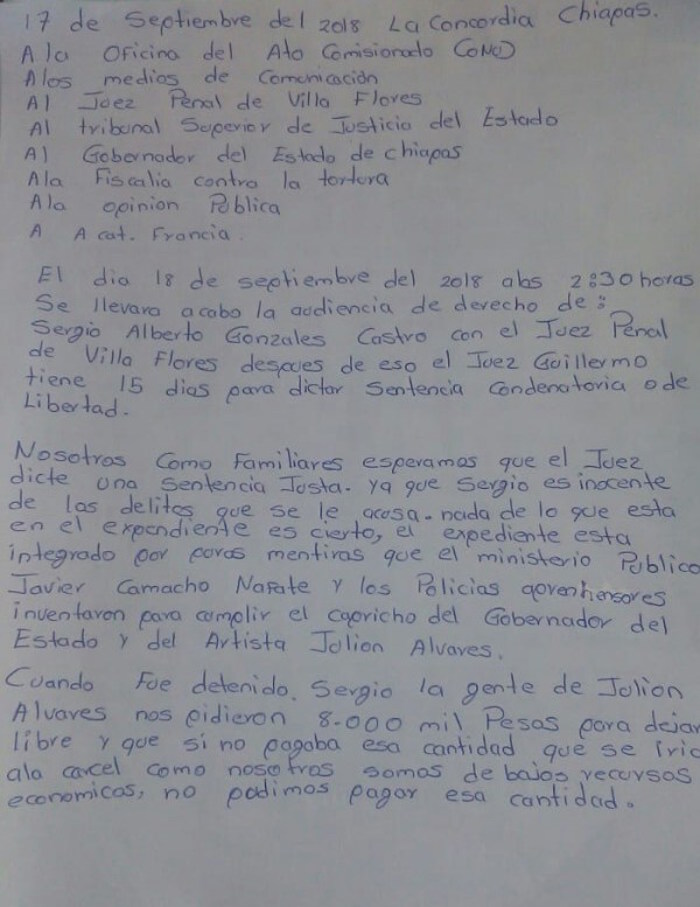 17 de Septiembre del 2018 La Concordia Chiapas.
A la Oficina del Ato Comisionado (ONU)
Alos medios de Comunicación
Al Juez Penal de Villa Flores
Al tribunal Superior de Justicia del Estado
Al Gobernador del Estado de chiapas
Ala Fiscalia contra la tortura
Ala opinion Pública
A Acat. Francia.
El dia 18 de septiembre del 2018 alas 2:30 horas
Se llevara acabo la audiencia de derecho de:
Sergio Alberto Gonzales Castro con el Juez Penal
de Villa Flores despues de eso el Juez Guillermo
tiene 15 dias para dictar Sentencia Condenatoria o de
Libertad.
Nosotros Como Familiares esperamos que el Juez
dicte una Sentencia Justa. ya que Sergio es inocente
de los delitos que se le acusa. nada de lo que esta
en el expendiente es cierto, el expediente esta
integrado por puras mentiras que el ministerio Publico
Javier Camacho Nafate y los Policias
inventaron para cumplir el capricho del Gobernador del
Estado y del Artista Julion Alvares.
Cuando Fue detenido. Sergio la gente de Julion
Alvares nos pidieron 8.000 mil Pesos para dejar
libre y que si no pagaba esa cantidad que se iria
ala carcel como nosotros somos de bajos recursos
economicos, no pudimos pagar esa cantidad.